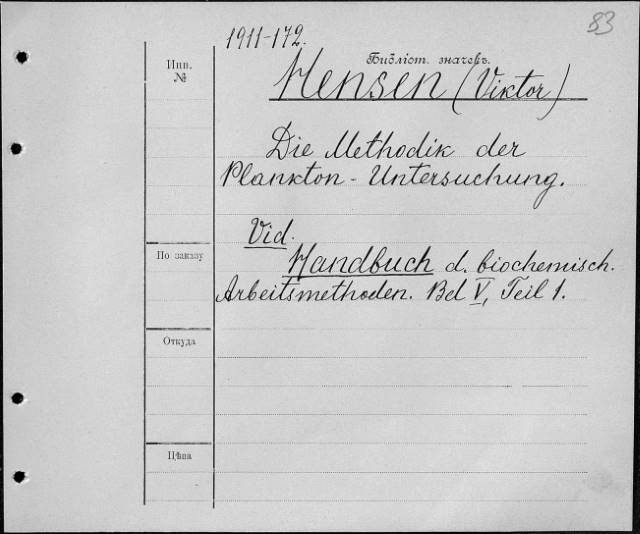 83
1911-172.
Библіот. значекъ.
Инв.
№
Hensen (Viktor)
Die Methodik der
Plankton-Untersuchung.
Vid.
Handbuch d. biochemisch.
По заказу
Arbeitsmethoden. Bd V, Teil 1.
Откуда
Цѣна